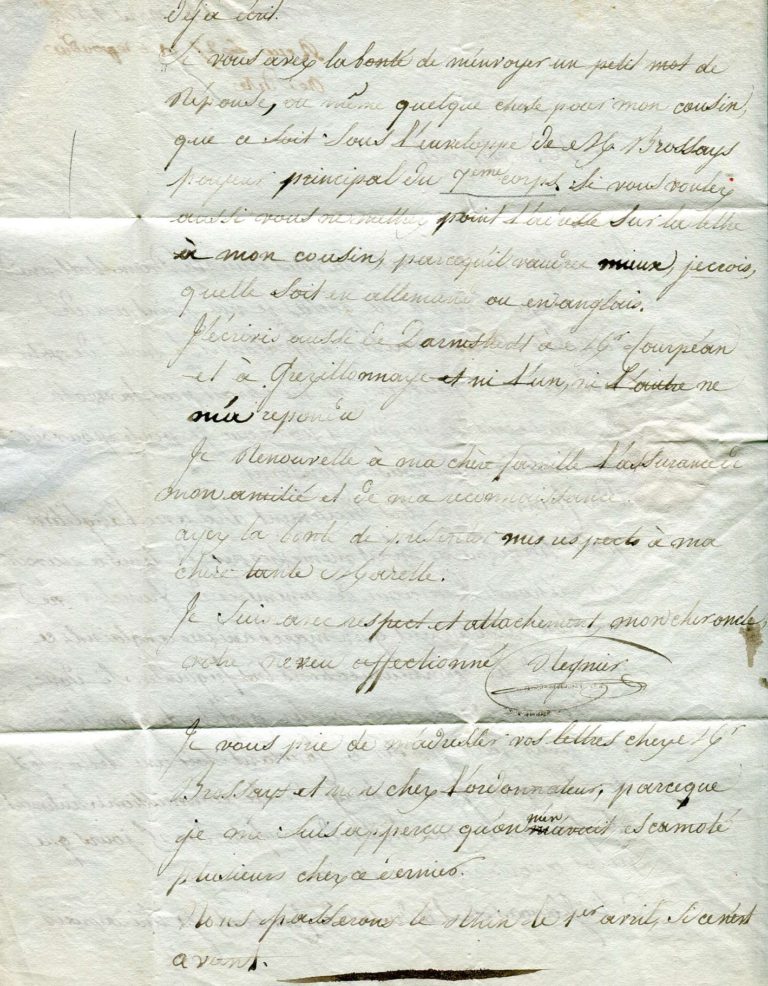 déja écrit.
Si vous avez la bonté de m'envoyer un petit mot de
Réponse, ou même quelque chose pour mon cousin,
que ce soit sous l'enveloppe de Mr Brossays
payeur principal du 7eme corps. Si vous voulez
aussi vous ne mettrez point l'adresse sur la lettre
à mon cousin, parcequ'il vaudra mieux, je crois,
quelle soit en allemand ou en anglois.
J'écrivis aussi de Darmstadt à Mr Jourpéan
et à Grezillonnaye et ni l'un, ni l'autre ne
m'a repondu
Je Renouvelle à ma chère famille l'assurance de
mon amitié et de ma reconnaissance.
ayez la bonté de présenter mes respects à ma
chère tante Marelle.
Je suis avec respect et attachement, mon cher oncle,
votre neveu affectionné Regnier
Je vous prie de m'adresser vos lettres chez Mr
Brossays et non chez l'ordonnateur, parceque
je me suis apperçu qu'on m'en m'avait escamoté
plusieurs chez ce dernier.
Nous passerons le Rhin le 1er avril, si ce n'est
avant.